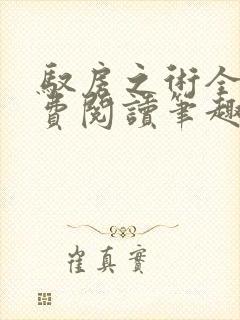 馭房之術全
費閱讀筆趣
崔真實